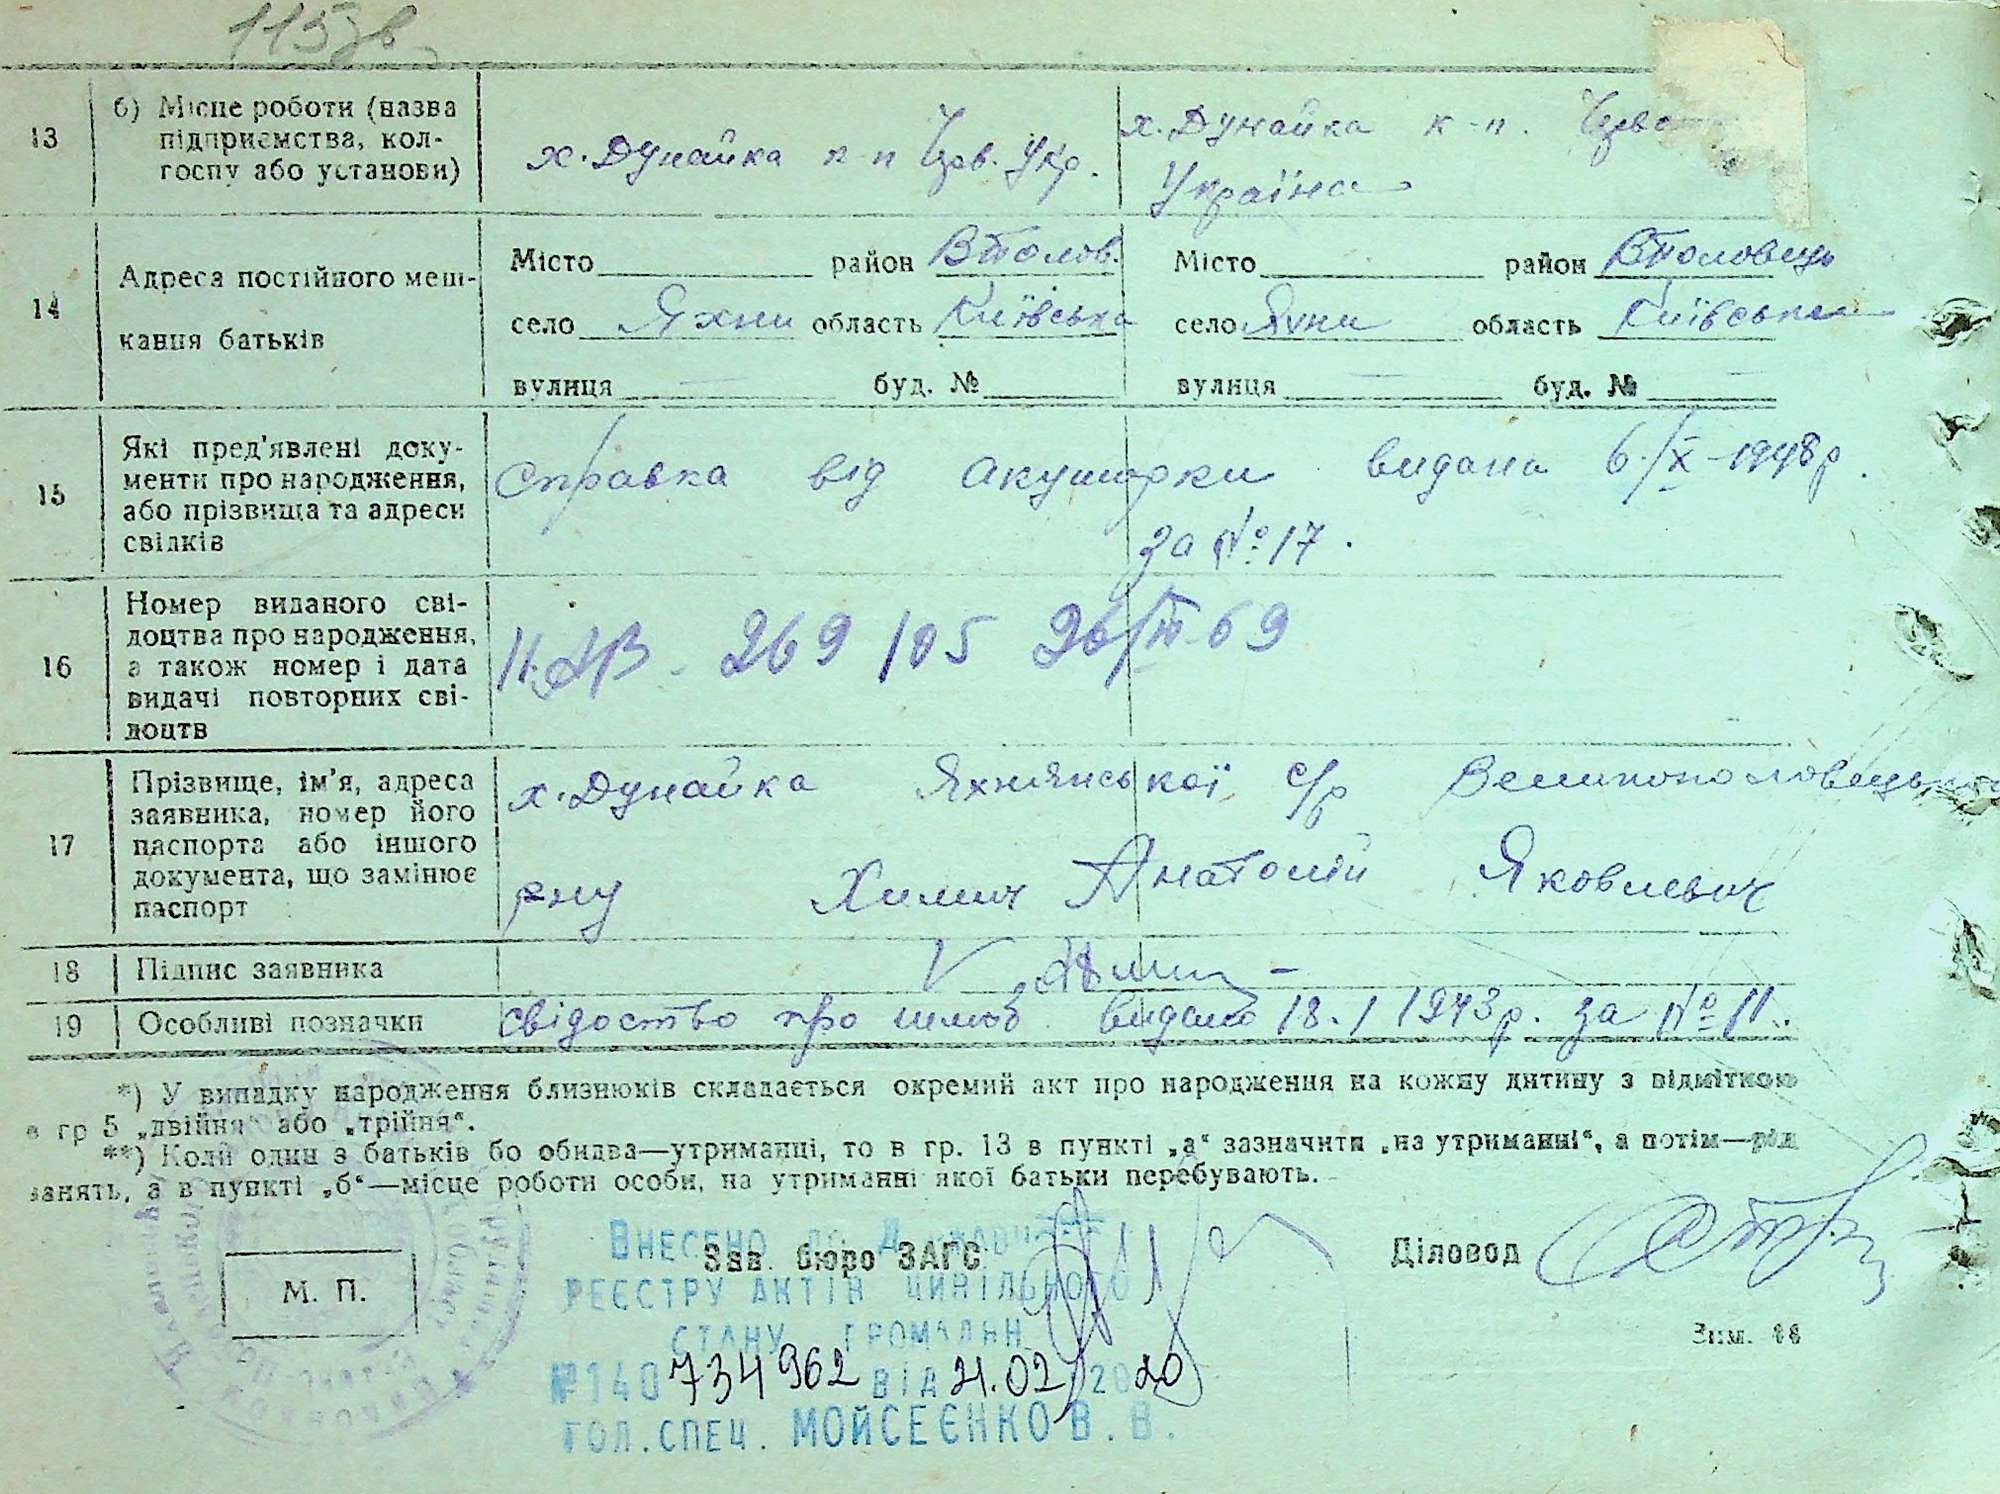 115зв
13 б) Місце роботи (назва підприємства, колгоспу або установи)
х. Дунайка к-п Черв. Укр.
х. Дунайка к-п. Черво
Україна
14 Адреса постійного мешкання батьків
Місто район ВПолов.
село Яхни область Київська
вулиця — буд. №
Місто район ВПоловець
село Яхни область Київська
вулиця — буд. № —
15 Які пред'явлені документи про народження, або прізвища та адреси свідків
справка від акушерки видана 6/X-1948р.
за № 17.
16 Номер виданого свідоцтва про народження, а також номер і дата видачі повторних свідоцтв
269105 26/ 69
17 Прізвище, ім'я, адреса заявника, номер його паспорта або іншого документа, що замінює паспорт
х. Дунайка Яхнянської с/р Великополовецьк
рну Химич Анатолій Яковлевич
18 Підпис заявника
19 Особливі позначки
свідоство про шлюб видано 18.1 1943р. за № 11.
*) У випадку народження близнюків складається окремий акт про народження на кожну дитину з відміткою
в гр 5 „двійня“ або „трійня“.
**) Коли один з батьків бо обидва—утриманці, то в гр. 13 в пункті „а“ зазначити „на утриманні“, а потім—рід
занять, а в пункті „б“—місце роботи особи, на утриманні якої батьки перебувають.
М. П.
Зав. бюро ЗАГС
Діловод
Зам. 88
ВНЕСЕНО ДО ДЕРЖАВНОГО
РЕЄСТРУ АКТІВ ЦИВІЛЬНОГО
СТАНУ ГРОМАДЯН
№140 734962 ВІД 21.02 2020
ГОЛ.СПЕЦ. МОЙСЕЄНКО В. В.